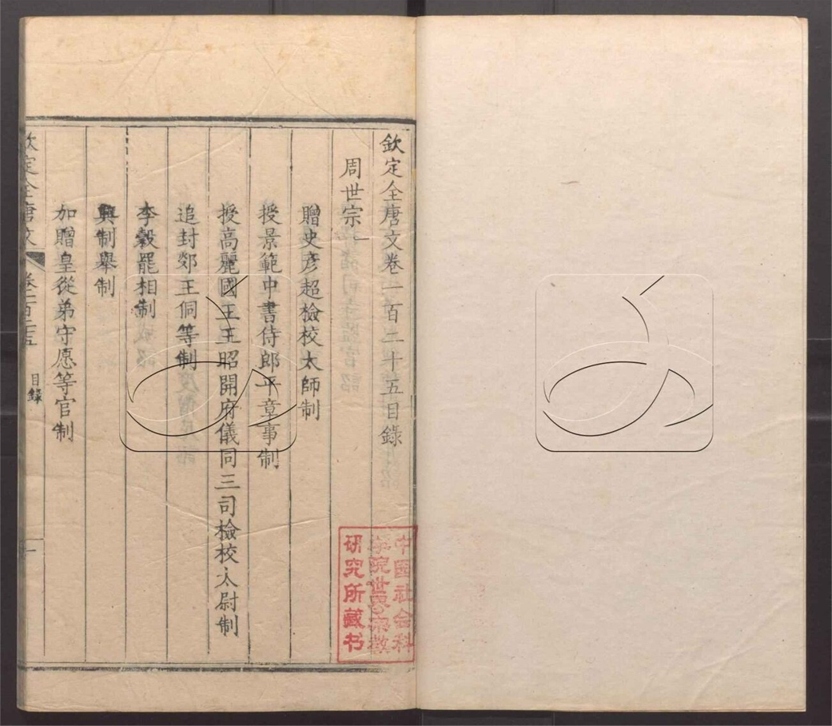 欽定全唐文卷一百二十五目錄
周世宗一
贈史彥超檢校太師制
授景範中書侍郎平章事制
授高麗國王王昭開府儀同三司檢校太尉制
追封郯王侗等制
李穀罷相制
興制舉制
加贈皇從弟守愿等官制
欽定全唐文
卷一百二十五
目錄
一
中國社会科
学院世界宗教
研究所藏书